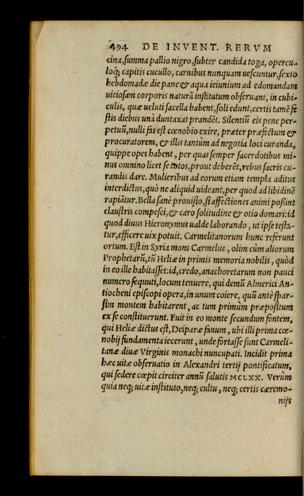 494 DE INVENT. RERVM
cina, summa pallio nigro, subter candida toga, opercu-
loq; capitis cucullo, carnibus nunquam uescuntur, sexto
hebdomadæ die pane & aqua ieiunium ad edomandam
uitiosam corporis naturã institutum obseruant, in cubi-
culis, quæ ueluti sacella habent, soli edunt, certis tamẽ fe-
stis diebus unà duntaxat prandẽt. Silentiũ eis pene per-
petuũ, nulli fas est cœnobio exire, præter præfectum &
procuratorem, & illis tantùm ad negotia loci curanda,
quippe opes habent, per quas semper sacerdotibus mi-
nus omnino licet
curandis dare. Mulieribus ad eorum etiam templa aditus
interdictus, quò ne aliquid uideant, per quod ad libidinẽ
rapiãtur. Bella sanè prouisio, si affectiones animi possint
claustris compesci, & caro solitudine & otio domari: id
quod diuus Hieronymus ualde laborando, ut ipse testa-
tur, efficere uix potuit. Carmelitanorum hunc referunt
ortum. Est in Syria mons Carmelus, olim cùm aliorum
Prophetarũ, tũ Heliæ in primis memoria nobilis, quòd
in eo ille habitasset: id, credo, anachoretarum non pauci
numero sequuti, locum tenuere, qui demũ Almerici An-
tiocheni episcopi opera, in unum coiere, qui antè spar-
sim montem habitarent, ac tum primùm præpositum
ex se constituerunt. Fuit in eo monte secundum fontem,
qui Heliæ dictus est, Deiparæ fanum, ubi illi prima cœ-
nobij fundamenta iecerunt, unde fortasse sunt Carmeli-
tanæ diuæ Virginis monachi nuncupati. Incidit prima
hæc uitæ obseruatio in Alexandri tertij pontificatum,
qui sedere cœpit circiter annũ salutis MCLXX. Verùm
quia neq; uitæ instituto, neq; cultu, neq; certis cæremo-
nijs